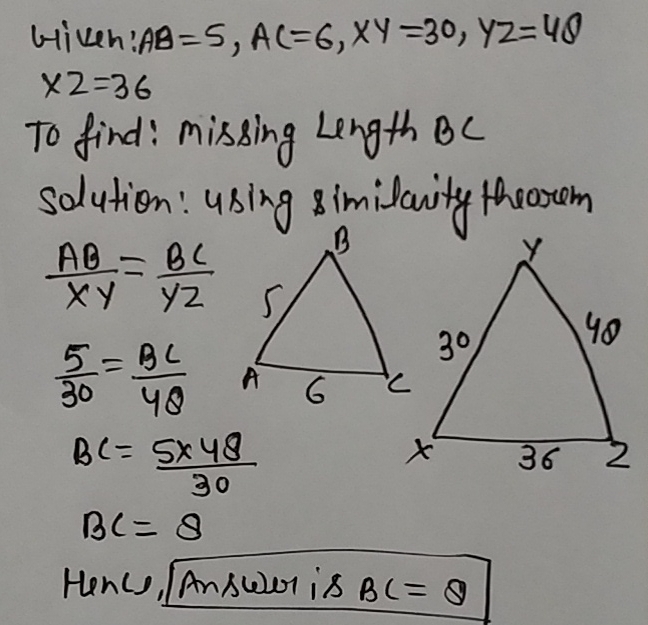 Given: AB=5, AC=6, XY=30, YZ=48
XZ=36
To find: missing Length BC
Solution: using similarity theorem
AB/XY = BC/YZ
5/30 = BC/48
BC= 5x48/30
BC= 8
Hence, Answer is BC= 8
B
5
A
6
C
Y
30
48
X
36
Z